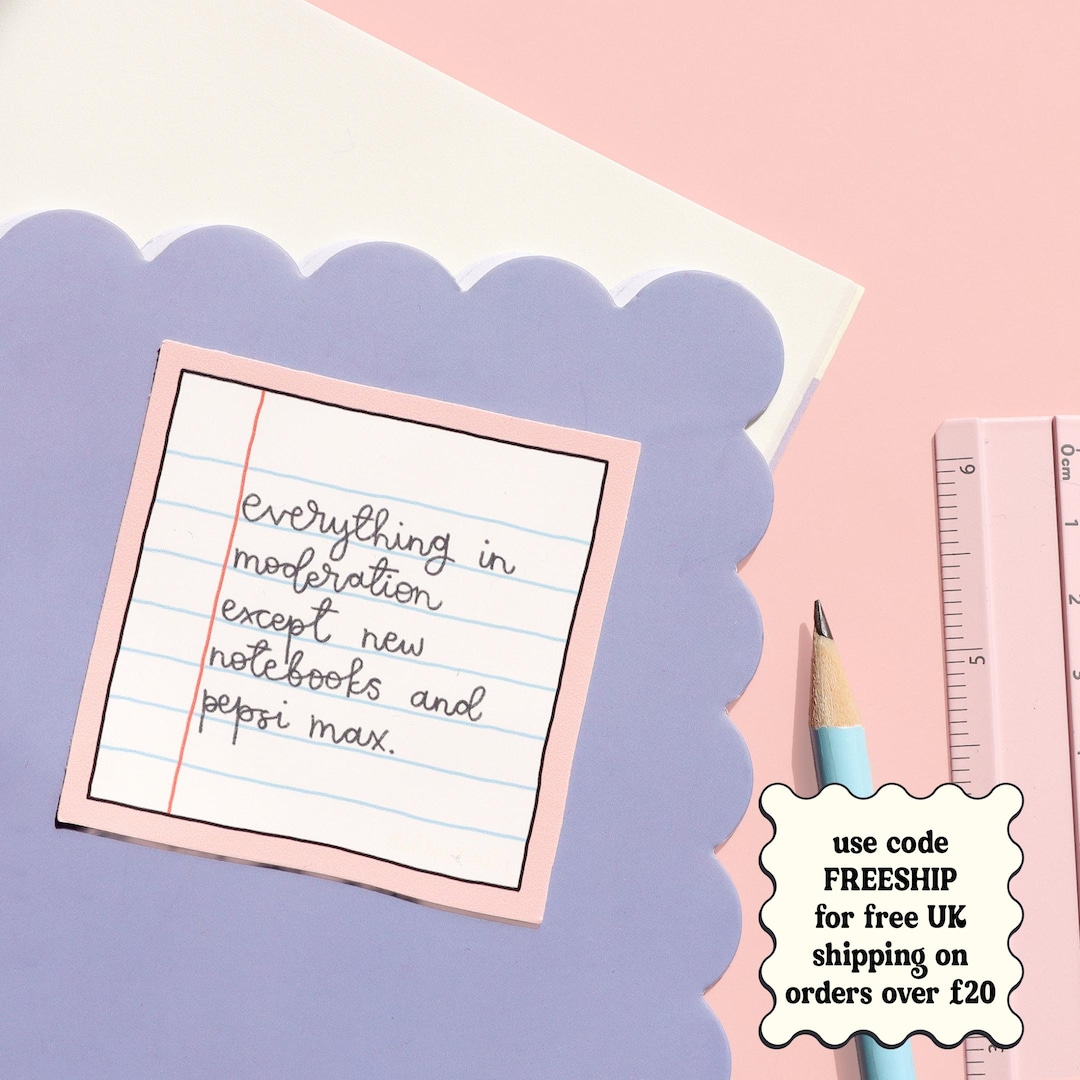 everything in
moderation
except new
notebooks and
pepsi max.
0cm
1
2
3
6
5
use code
FREESHIP
for free UK
shipping on
orders over £20